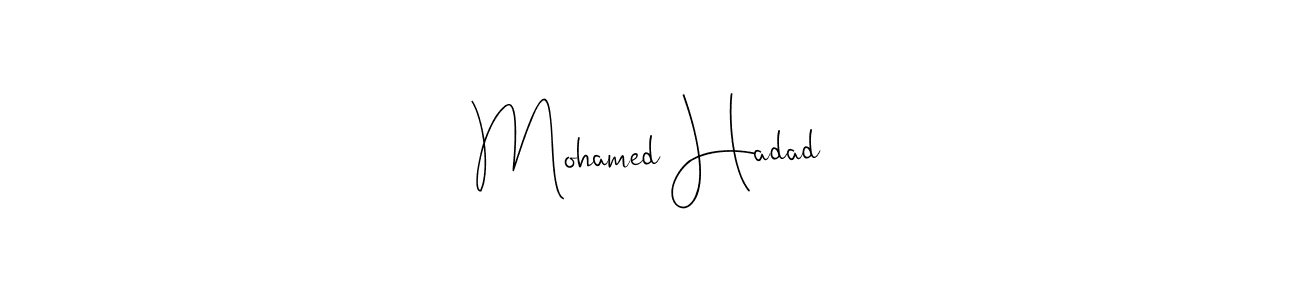 Mohamed Hadad